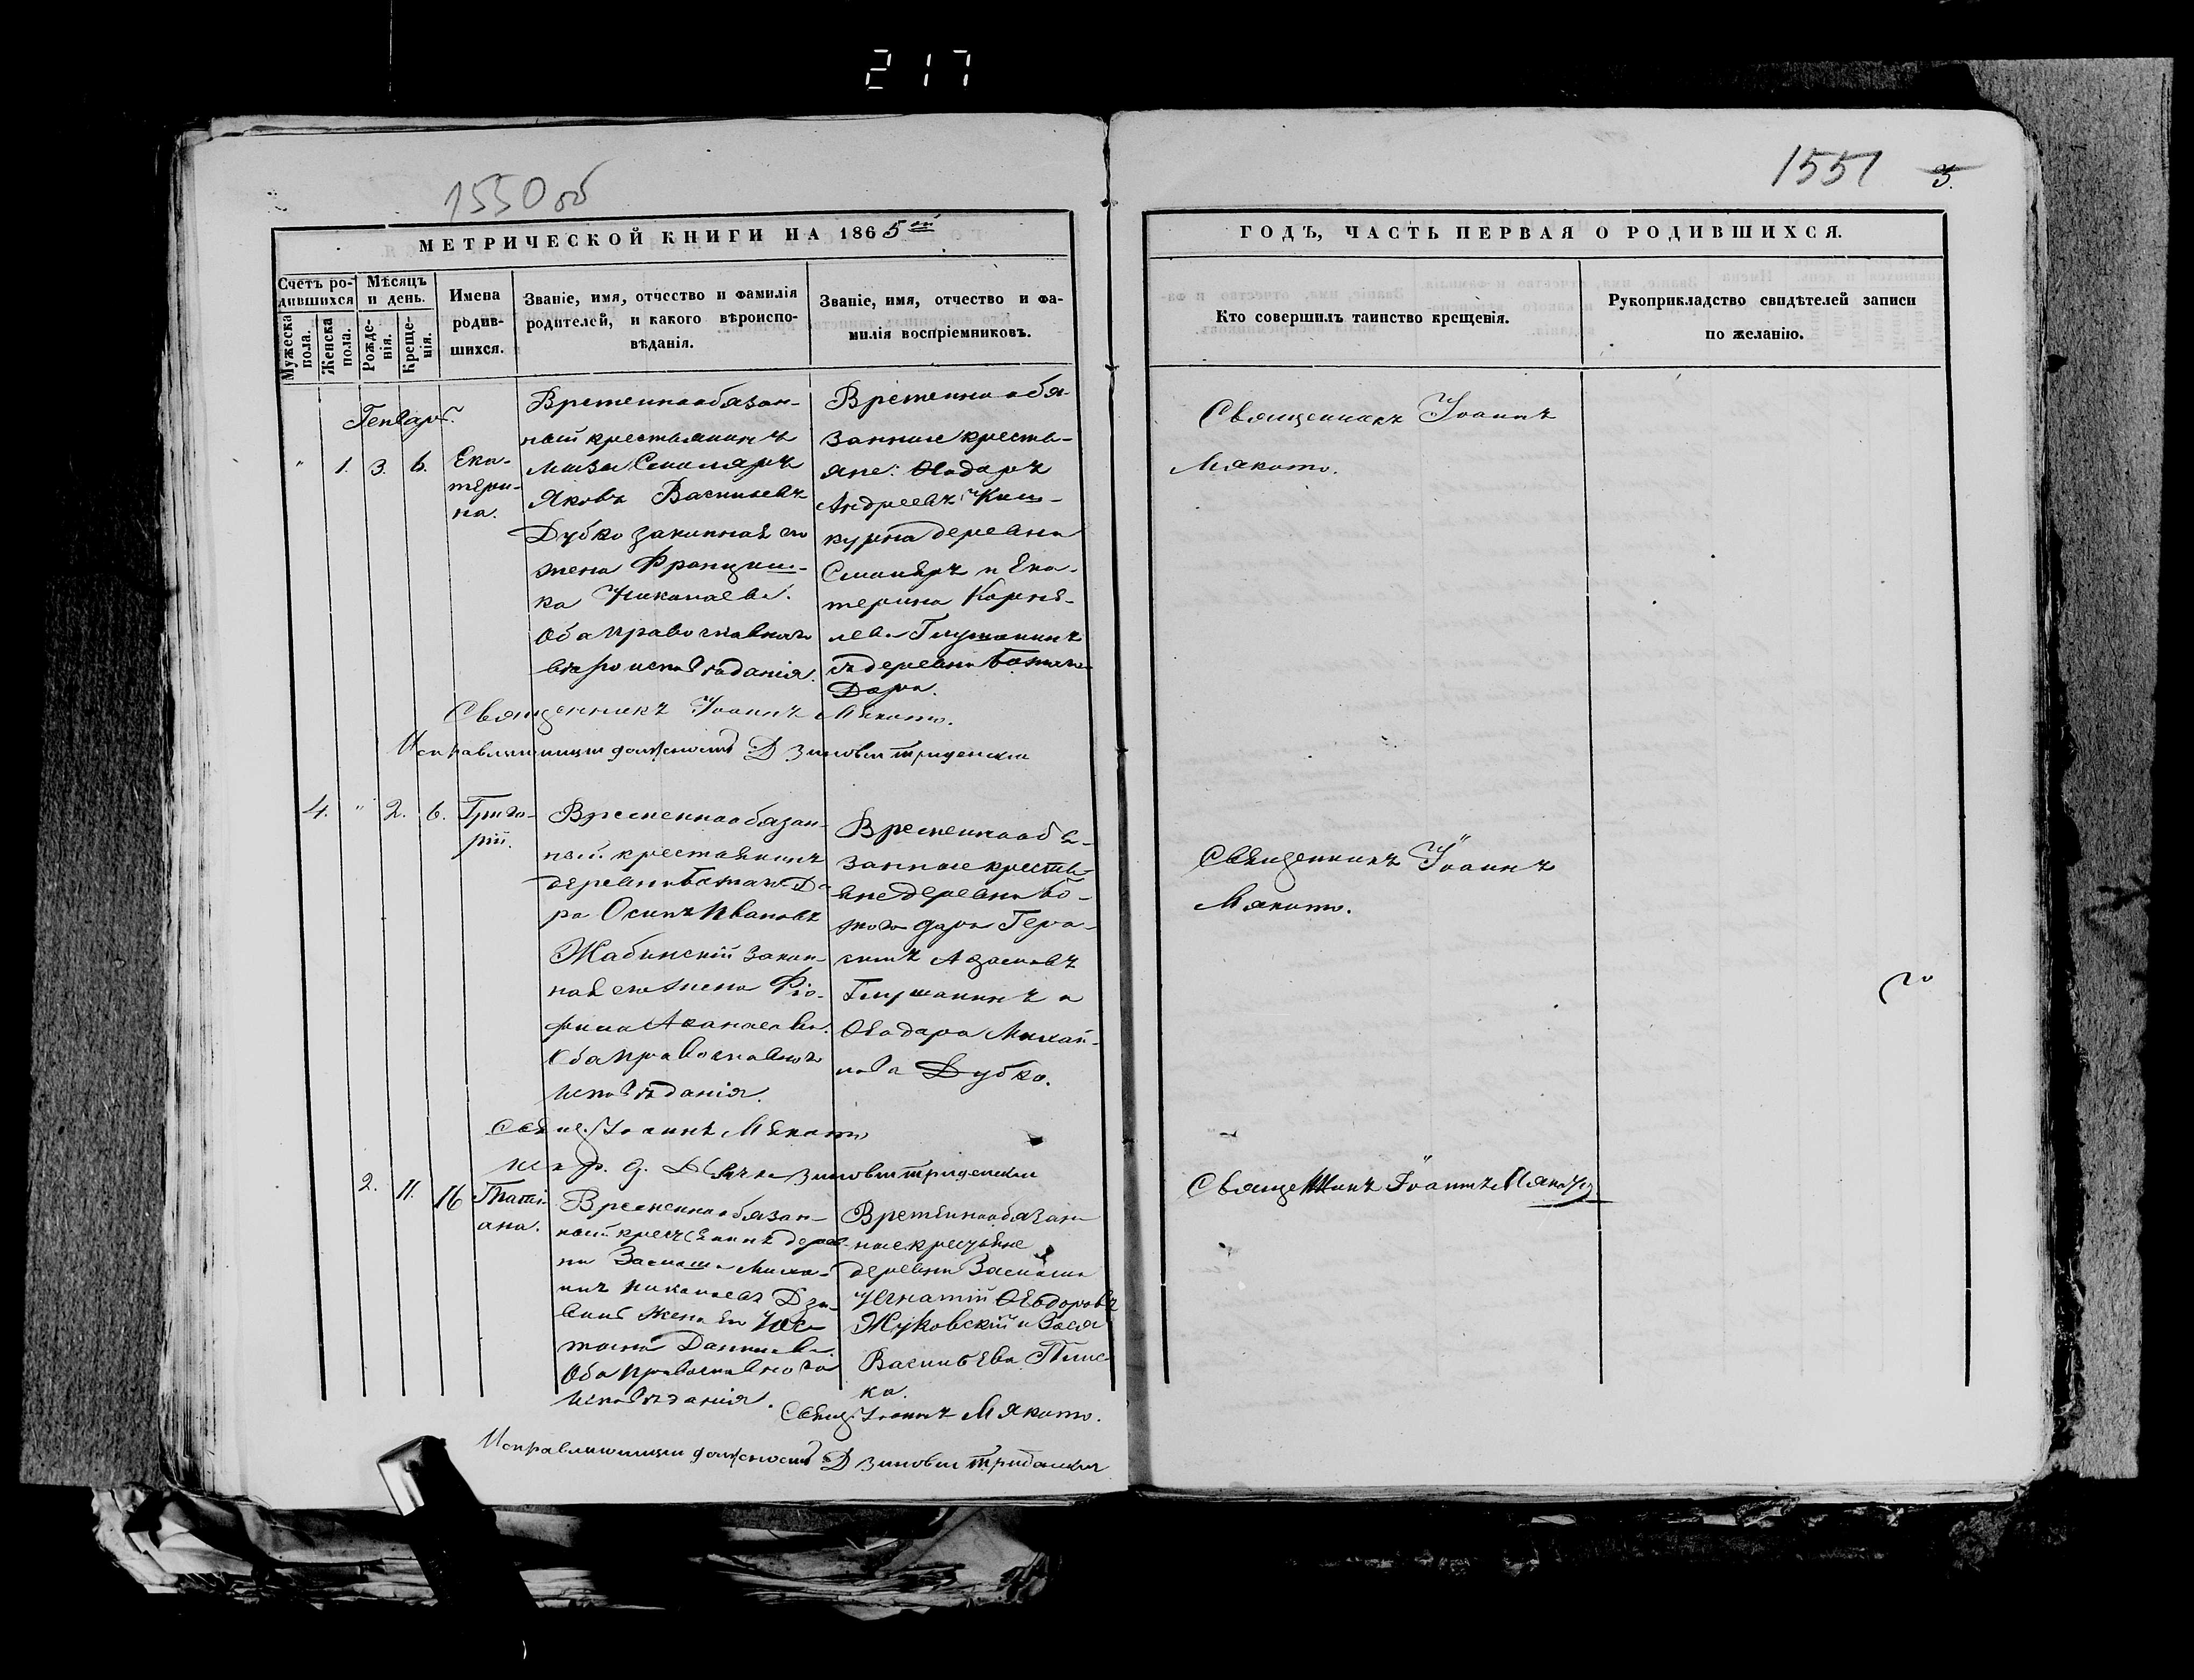 217
1550 об
1551 3.
МЕТРИЧЕСКОЙ КНИГИ НА 1865ый
ГОДЪ, ЧАСТЬ ПЕРВАЯ О РОДИВШИХСЯ.
Счетъ ро-
дившихся
Мужеска
пола.
Женска
пола.
Мѣсяцъ
и день.
Рожде-
нія.
Креще-
нія.
Имена
родив-
шихся.
Званіе, имя, отчество и фамилія
родителей, и какого вѣроиспо-
вѣданія.
Званіе, имя, отчество и фа-
милія воспріемниковъ.
Кто совершилъ таинство крещенія.
Рукоприкладство свидѣтелей записи
по желанію.
Генварь.
" 1. 3. 6.
Ека-
тери-
на.
Временнообязан-
ный крестьянинъ
Яковъ Васильевъ
Дубко законная его
жена Франциш-
ка Николаева.
Оба православнаго
вѣроисповѣданія.
Временнообя-
занные кресть-
яне: Ѳеодоръ
Андреевъ
деревни
и Ека-
терина
Глушанинъ
деревни Божаго
Дара.
Священникъ Іоаннъ
Мякото.
Священникъ Іоаннъ Мякото.
Исправляющій должность Д Зиновій
4. " 2. 6.
Григо-
рій.
Временнообязан-
ный крестьянинъ
деревни Божаго Да-
ра Осипъ Ивановъ
Жабинскій закон-
ная его жена
Оба православнаго
исповѣданія.
Временнообя-
занные кресть-
яне деревни Бо-
жого дара Гера-
симъ
Глушанинъ и
Ѳеодора Михай-
лова Дубко.
Священникъ Іоаннъ
Мякото.
Свящ. Іоаннъ Мякото
Испр. д. Дьячка Зиновій
2. 11. 16
Татi-
ана.
Временнообязан-
ный крестьянинъ дерев-
ни
Николаевъ
жена его
Даниилова.
Оба православного
исповѣданія.
Временнообязан-
ные крестьяне
деревни
Игнатій Ѳеодоровъ
Жуковскій и
Васильева
ка.
Священникъ Іоаннъ Мякото
Свящ. Іоаннъ Мякото.
Исправляющій должность Д Зиновій